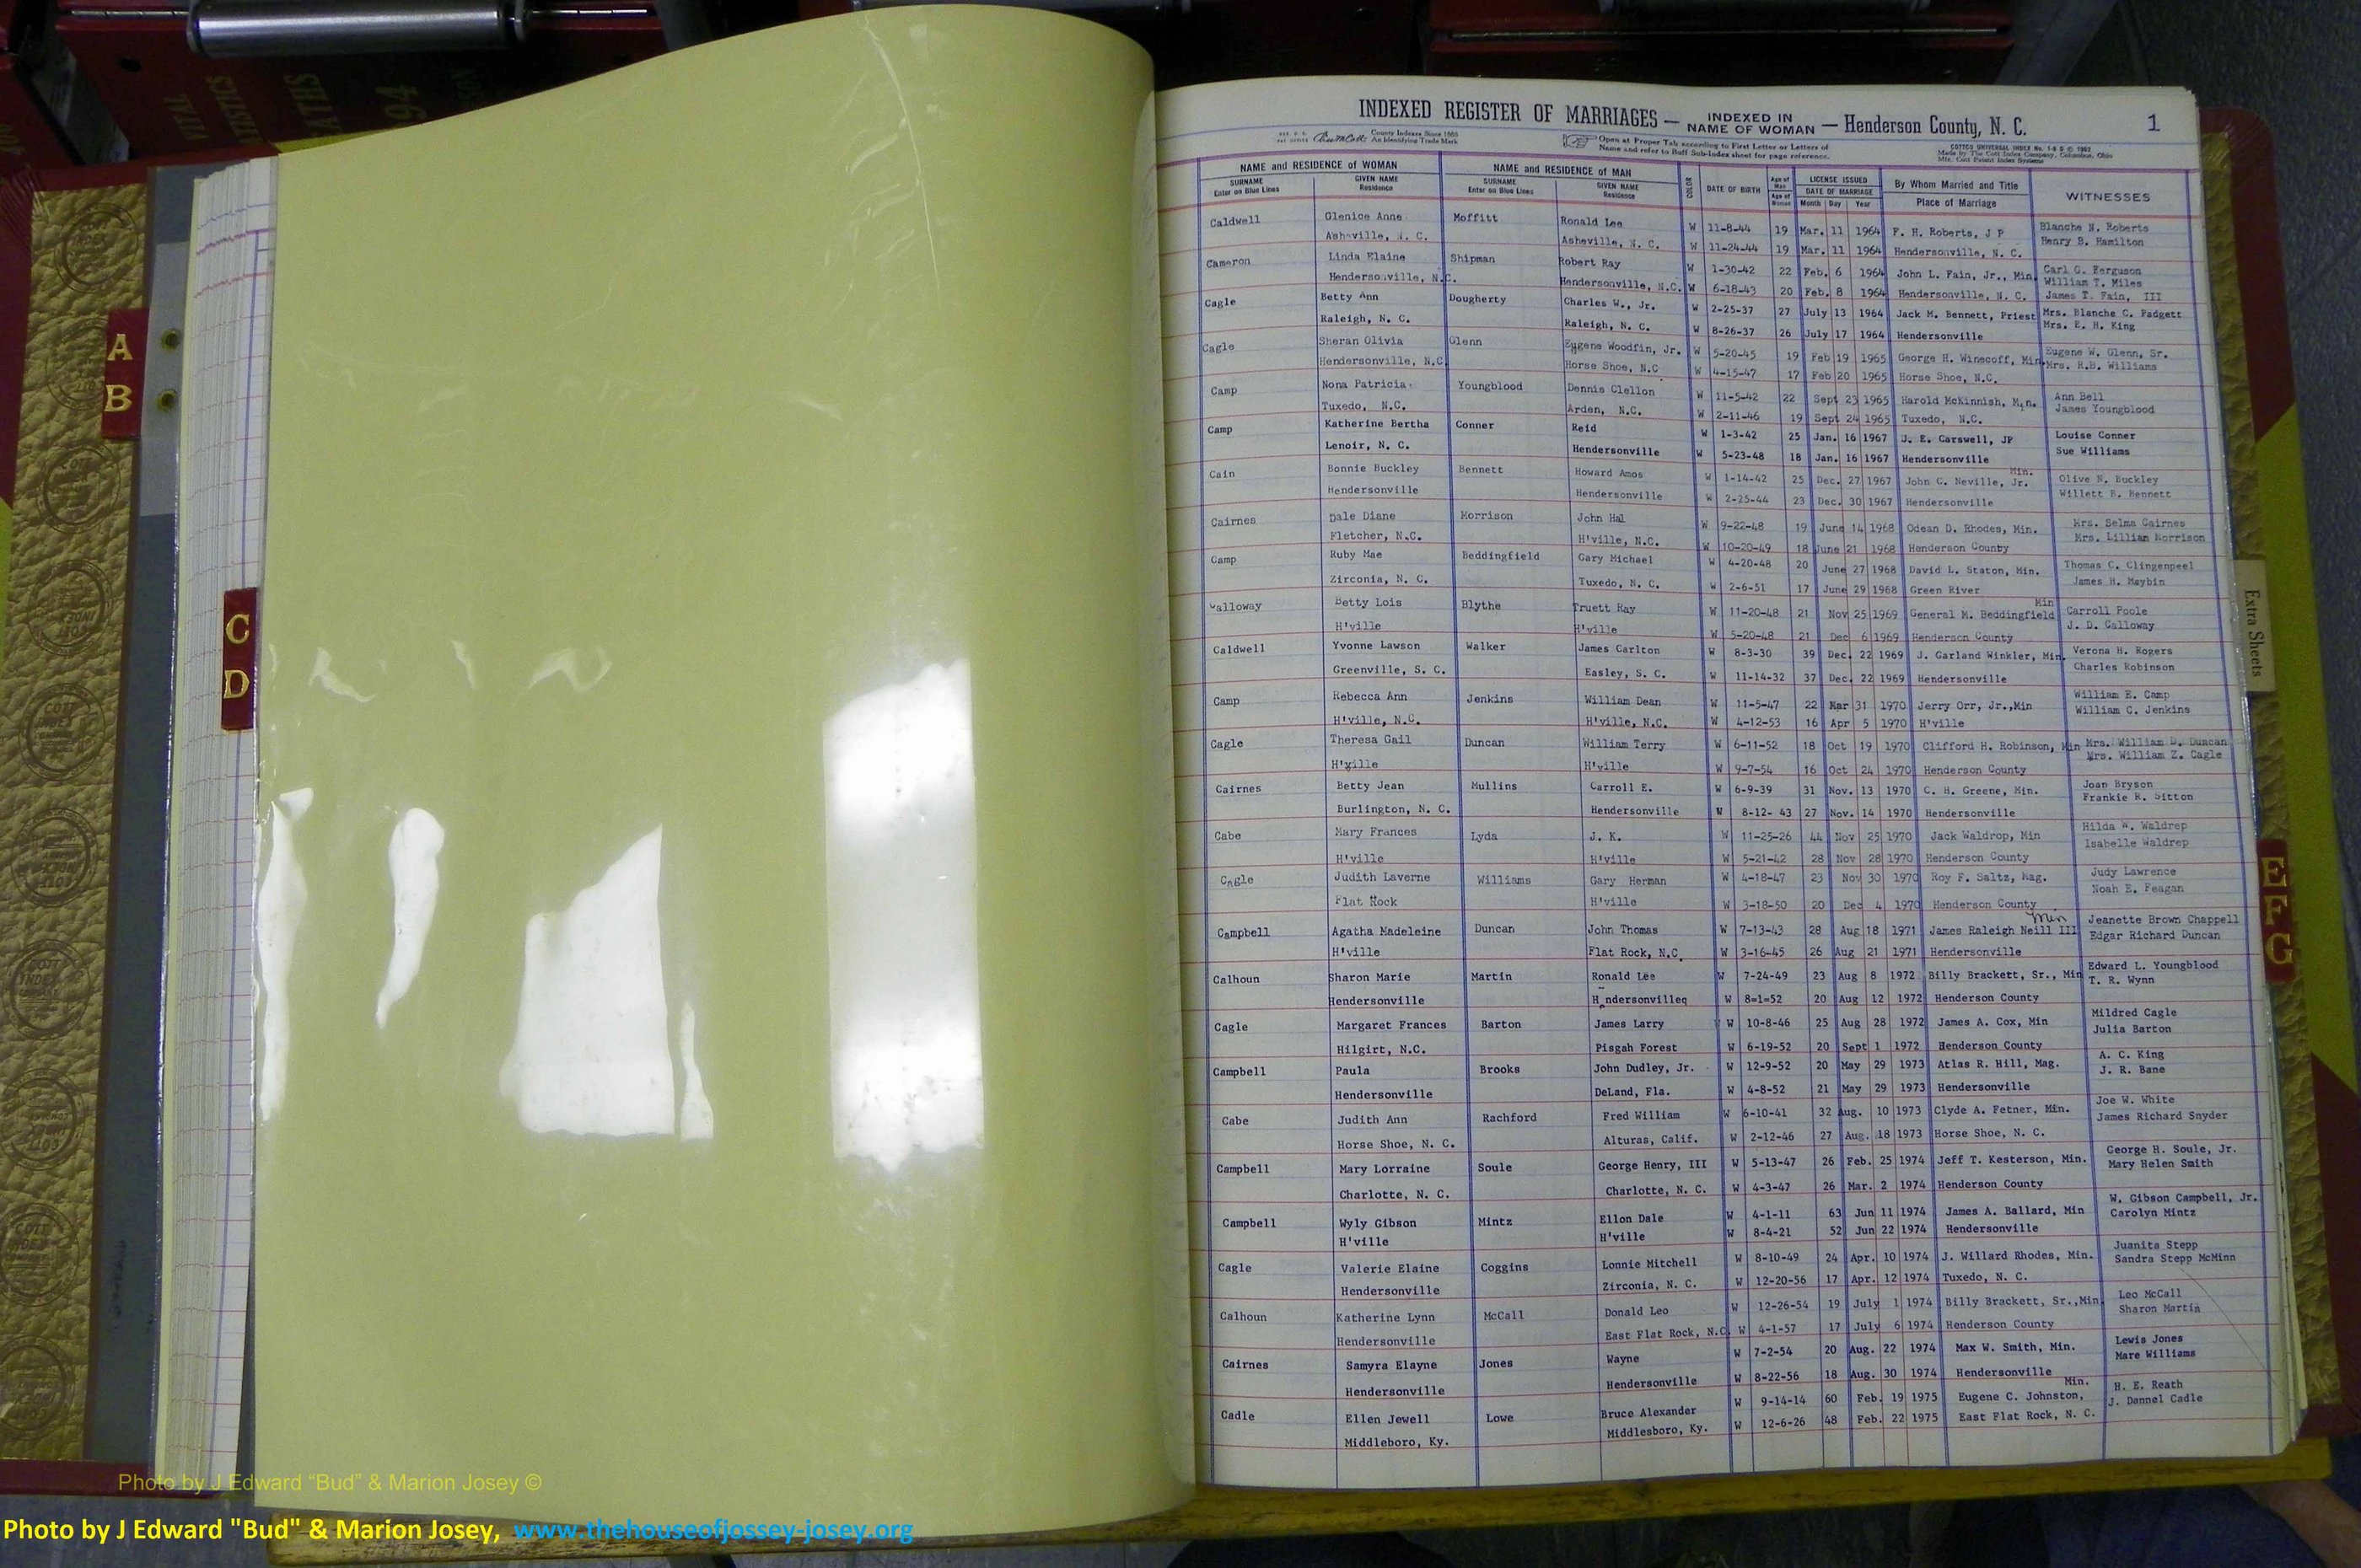 VITAL
DEATHS
94
A
B
C
D
Extra Sheets
EFG
INDEXED REGISTER OF MARRIAGES — INDEXED IN NAME OF WOMAN — Henderson County, N. C. 1
County Indexes Since 1888
An Identifying Trade Mark
Open at Proper Tab according to First Letter or Letters of
Name and refer to Buff Sub-Index sheet for page reference.
COTTCO UNIVERSAL INDEX
Made by The Cott Index Company, Columbus, Ohio
NAME and RESIDENCE OF WOMAN NAME and RESIDENCE OF MAN COLOR DATE OF BIRTH Age of Man LICENSE ISSUED By Whom Married and Title WITNESSES
SURNAME GIVEN NAME SURNAME GIVEN NAME Age of Woman DATE OF MARRIAGE Place of Marriage
Enter on Blue Lines Residence Enter on Blue Lines Residence Month Day Year
Caldwell Glenice Anne Moffitt Ronald Lee W 11-8-44 19 Mar. 11 1964 F. H. Roberts, J P Blanche N. Roberts
Asheville, N. C. Asheville, N. C. W 11-24-44 19 Mar. 11 1964 Hendersonville, N. C. Henry B. Hamilton
Cameron Linda Elaine Shipman Robert Ray W 1-30-42 22 Feb. 6 1964 John L. Fain, Jr., Min. Carl G. Ferguson
William T. Miles
Hendersonville, N.C. Hendersonville, N.C. W 6-18-43 20 Feb. 8 1964 Hendersonville, N. C. James T. Fain, III
Cagle Betty Ann Dougherty Charles W., Jr. W 2-25-37 27 July 13 1964 Jack M. Bennett, Priest Mrs. Blanche C. Padgett
Raleigh, N. C. Raleigh, N. C. W 8-26-37 26 July 17 1964 Hendersonville Mrs. E. H. King
Cagle Sheran Olivia Glenn Eugene Woodfin, Jr. W 5-20-45 19 Feb 19 1965 George H. Winecoff, Min. Eugene W. Glenn, Sr.
Hendersonville, N.C Horse Shoe, N.C W 4-15-47 17 Feb 20 1965 Horse Shoe, N.C. Mrs. R.B. Williams
Camp Nona Patricia Youngblood Dennis Clellon W 11-5-42 22 Sept 23 1965 Harold McKinnish, Min. Ann Bell
Tuxedo, N.C. Arden, N.C. W 2-11-46 19 Sept 24 1965 Tuxedo, N.C. James Youngblood
Camp Katherine Bertha Conner Reid W 1-3-42 25 Jan. 16 1967 J. E. Carswell, JP Louise Conner
Lenoir, N. C. Hendersonville W 5-23-48 18 Jan. 16 1967 Hendersonville Sue Williams
Cain Bonnie Buckley Bennett Howard Amos W 1-14-42 25 Dec. 27 1967 John C. Neville, Jr. Min. Olive N. Buckley
Hendersonville Hendersonville W 2-25-44 23 Dec. 30 1967 Hendersonville Willett B. Bennett
Cairnes Dale Diane Morrison John Hal W 9-22-48 19 June 14 1968 Odean D. Rhodes, Min. Mrs. Selma Cairnes
Fletcher, N.C. H'ville, N.C. W 10-20-49 18 June 21 1968 Henderson County Mrs. Lillian Morrison
Camp Ruby Mae Beddingfield Gary Michael W 4-20-48 20 June 27 1968 David L. Staton, Min. Thomas C. Clingenpeel
Zirconia, N. C. Tuxedo, N. C. W 2-6-51 17 June 29 1968 Green River James H. Maybin
Calloway Betty Lois Blythe Truett Ray W 11-20-48 21 Nov 25 1969 General M. Beddingfield Min Carroll Poole
H'ville H'ville W 5-20-48 21 Dec 6 1969 Henderson County J. D. Calloway
Caldwell Yvonne Lawson Walker James Carlton W 8-3-30 39 Dec. 22 1969 J. Garland Winkler, Min. Verona H. Rogers
Greenville, S. C. Easley, S. C. W 11-14-32 37 Dec. 22 1969 Hendersonville Charles Robinson
Camp Rebecca Ann Jenkins William Dean W 11-5-47 22 Mar 31 1970 Jerry Orr, Jr.,Min William E. Camp
H'ville, N.C. H'ville, N.C. W 4-12-53 16 Apr 5 1970 H'ville William C. Jenkins
Cagle Theresa Gail Duncan William Terry W 6-11-52 18 Oct 19 1970 Clifford H. Robinson, Min Mrs. William D. Duncan
H'ville H'ville W 9-7-54 16 Oct 24 1970 Henderson County Mrs. William Z. Cagle
Cairnes Betty Jean Mullins Carroll E. W 6-9-39 31 Nov. 13 1970 C. H. Greene, Min. Joan Bryson
Burlington, N. C. Hendersonville W 8-12- 43 27 Nov. 14 1970 Hendersonville Frankie R. Sitton
Cabe Mary Frances Lyda J. K. W 11-25-26 44 Nov 25 1970 Jack Waldrop, Min Hilda W. Waldrep
H'ville H'ville W 5-21-42 28 Nov 28 1970 Henderson County Isabelle Waldrep
Cagle Judith Laverne Williams Gary Herman W 4-18-47 23 Nov 30 1970 Roy F. Saltz, Mag. Judy Lawrence
Flat Rock H'ville W 3-18-50 20 Dec 4 1970 Henderson County Noah E. Feagan
Campbell Agatha Madeleine Duncan John Thomas W 7-13-43 28 Aug 18 1971 James Raleigh Neill III Min Jeanette Brown Chappell
H'ville Flat Rock, N.C. W 3-16-45 26 Aug 21 1971 Hendersonville Edgar Richard Duncan
Calhoun Sharon Marie Martin Ronald Lee W 7-24-49 23 Aug 8 1972 Billy Brackett, Sr., Min Edward L. Youngblood
Hendersonville Hendersonvilleq W 8=1=52 20 Aug 12 1972 Henderson County T. R. Wynn
Cagle Margaret Frances Barton James Larry W 10-8-46 25 Aug 28 1972 James A. Cox, Min Mildred Cagle
Hilgirt, N.C. Pisgah Forest W 6-19-52 20 Sept 1 1972 Henderson County Julia Barton
Campbell Paula Brooks John Dudley, Jr. W 12-9-52 20 May 29 1973 Atlas R. Hill, Mag. A. C. King
Hendersonville DeLand, Fla. W 4-8-52 21 May 29 1973 Hendersonville J. R. Bane
Cabe Judith Ann Rachford Fred William W 6-10-41 32 Aug. 10 1973 Clyde A. Fetner, Min. Joe W. White
Horse Shoe, N. C. Alturas, Calif. W 2-12-46 27 Aug. 18 1973 Horse Shoe, N. C. James Richard Snyder
Campbell Mary Lorraine Soule George Henry, III W 5-13-47 26 Feb. 25 1974 Jeff T. Kesterson, Min. George H. Soule, Jr.
Charlotte, N. C. Charlotte, N. C. W 4-3-47 26 Mar. 2 1974 Henderson County Mary Helen Smith
Campbell Wyly Gibson Mintz Ellon Dale W 4-1-11 63 Jun 11 1974 James A. Ballard, Min W. Gibson Campbell, Jr.
H'ville H'ville W 8-4-21 52 Jun 22 1974 Hendersonville Carolyn Mintz
Cagle Valerie Elaine Coggins Lonnie Mitchell W 8-10-49 24 Apr. 10 1974 J. Willard Rhodes, Min. Juanita Stepp
Hendersonville Zirconia, N. C. W 12-20-56 17 Apr. 12 1974 Tuxedo, N. C. Sandra Stepp McMinn
Calhoun Katherine Lynn McCall Donald Leo W 12-26-54 19 July 1 1974 Billy Brackett, Sr.,Min. Leo McCall
Hendersonville East Flat Rock, N.C. W 4-1-57 17 July 6 1974 Henderson County Sharon Martin
Cairnes Samyra Elayne Jones Wayne W 7-2-54 20 Aug. 22 1974 Max W. Smith, Min. Lewis Jones
Hendersonville Hendersonville W 8-22-56 18 Aug. 30 1974 Hendersonville Mare Williams
Cadle Ellen Jewell Lowe Bruce Alexander W 9-14-14 60 Feb. 19 1975 Eugene C. Johnston, Min. H. E. Reath
Middleboro, Ky. Middlesboro, Ky. W 12-6-26 48 Feb. 22 1975 East Flat Rock, N. C. J. Dannel Cadle
Photo by J Edward “Bud” & Marion Josey ©
Photo by J Edward "Bud" & Marion Josey, www.thehouseofjossey-josey.org